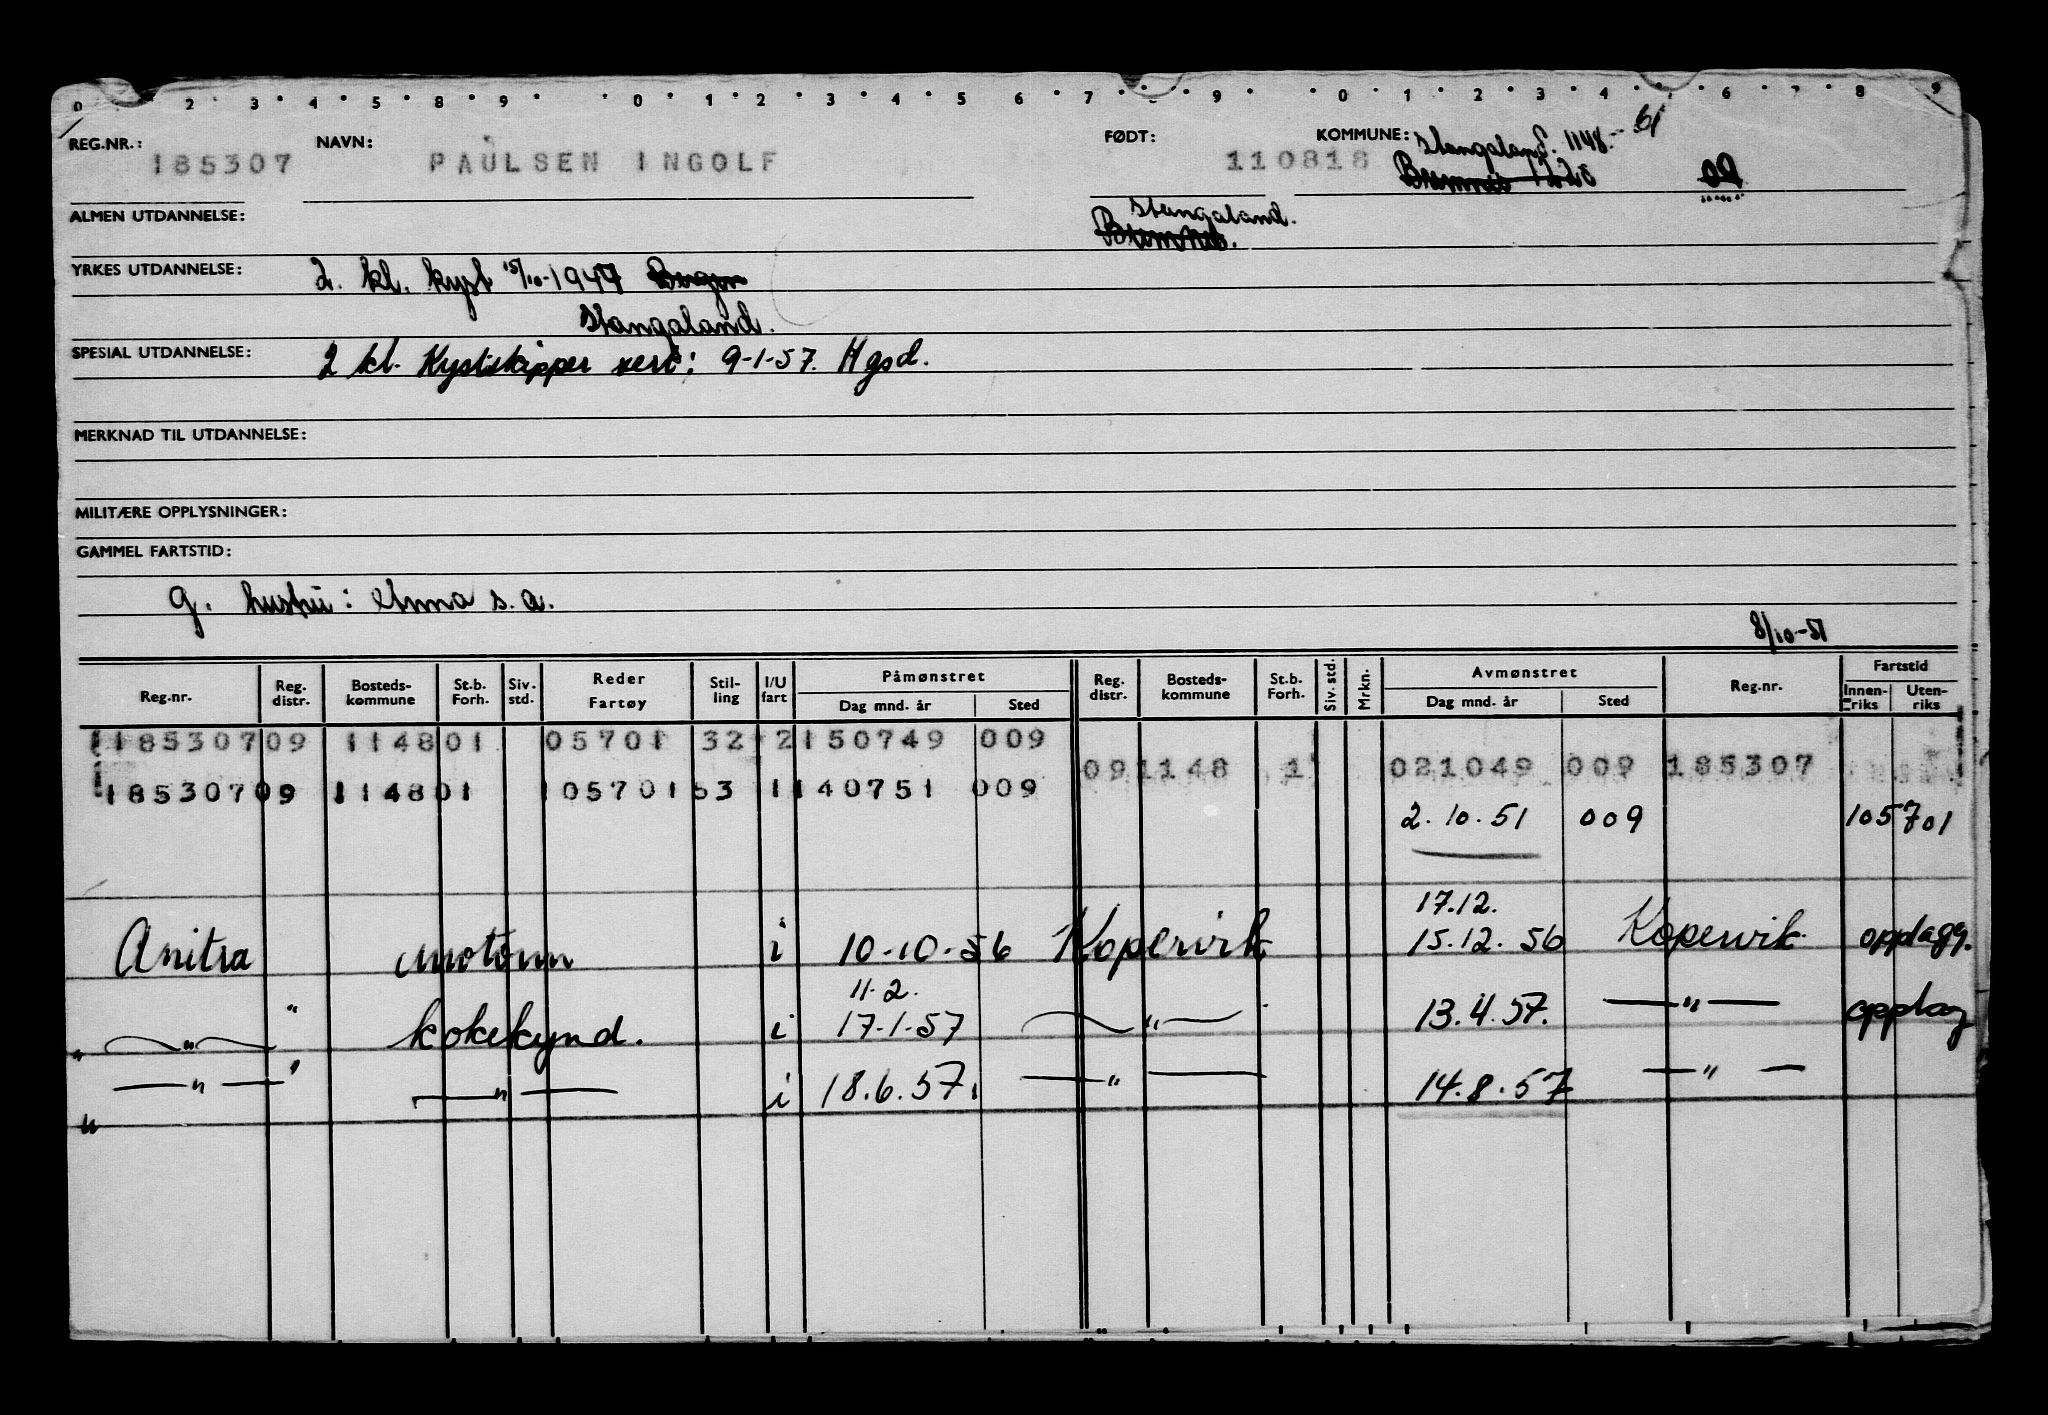 0 2 3 4 5 8 9 0 1 2 3 4 5 6 7 9 0 1 2 3 4 6 8 9
REG.NR.: 185307 NAVN: PAULSEN INGOLF FØDT: 110818 KOMMUNE: Stangaland. 1148. 61
ALMEN UTDANNELSE: Stangaland.
Bremnes.
YRKES UTDANNELSE: 2. kl. kyst 15/10-1947 Bergen
Stangaland.
SPESIAL UTDANNELSE: 2 kl. Kystskipper sert: 9-1-57. Hgsd.
MERKNAD TIL UTDANNELSE:
MILITÆRE OPPLYSNINGER:
GAMMEL FARTSTID:
g. hustru: Anna s.a.
8/10-51
Reg.nr. Reg. distr. Bosteds-kommune St.b. Forh. Siv. std. Reder Fartøy Stil-ling I/U fart Påmønstret Dag mnd. år Sted Reg. distr. Bosteds-kommune St.b. Forh. Siv. std. Mrkn. Avmønstret Dag mnd. år Sted Reg.nr. Fartstid Innen-riks Uten-riks
118530709 114801 05701 32 2 150749 009
091148 1 021049 009 185307
18530709 114801 105701 53 1 140751 009
2.10.51 009 105701
17.12.
Anitra motorm i 10-10-56 Kopervik 15.12.56 Kopervik opplagg.
11.2.
" — " — " kokekynd. i 17-1-57 — " — 13.4.57. — " — opplag
— " — " — " — i 18.6.57. — " — 14.8.57 — " —
"